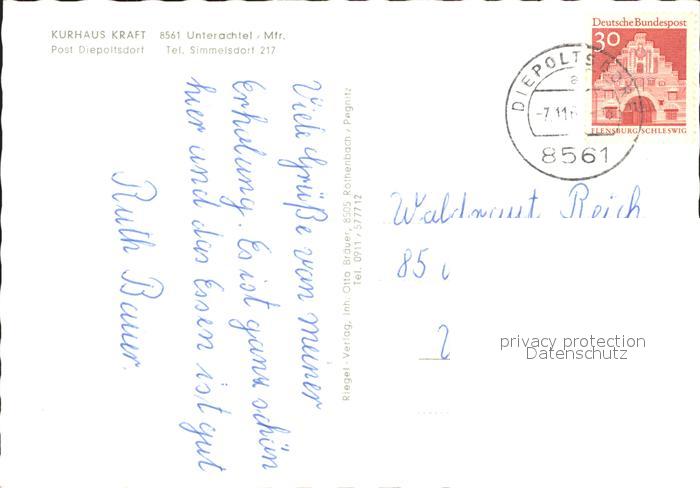 KURHAUS KRAFT 8561 Unterachtel / Mfr.
Post Diepoltsdorf Tel. Simmelsdorf 217
Viele Grüße von meiner
Erholung. Es ist ganz schön
hier und das Essen ist gut
Ruth Bauer.
Riegel-Verlag, Inh. Otto Bräuer, 8505 Röthenbach / Pegnitz
Tel. 0911 / 577712
Deutsche Bundespost
30
FLENSBURG/SCHLESWIG
DIEPOLTSDORF
a
-7.11.6
8561
Waldraut Reich
85
privacy protection
Datenschutz